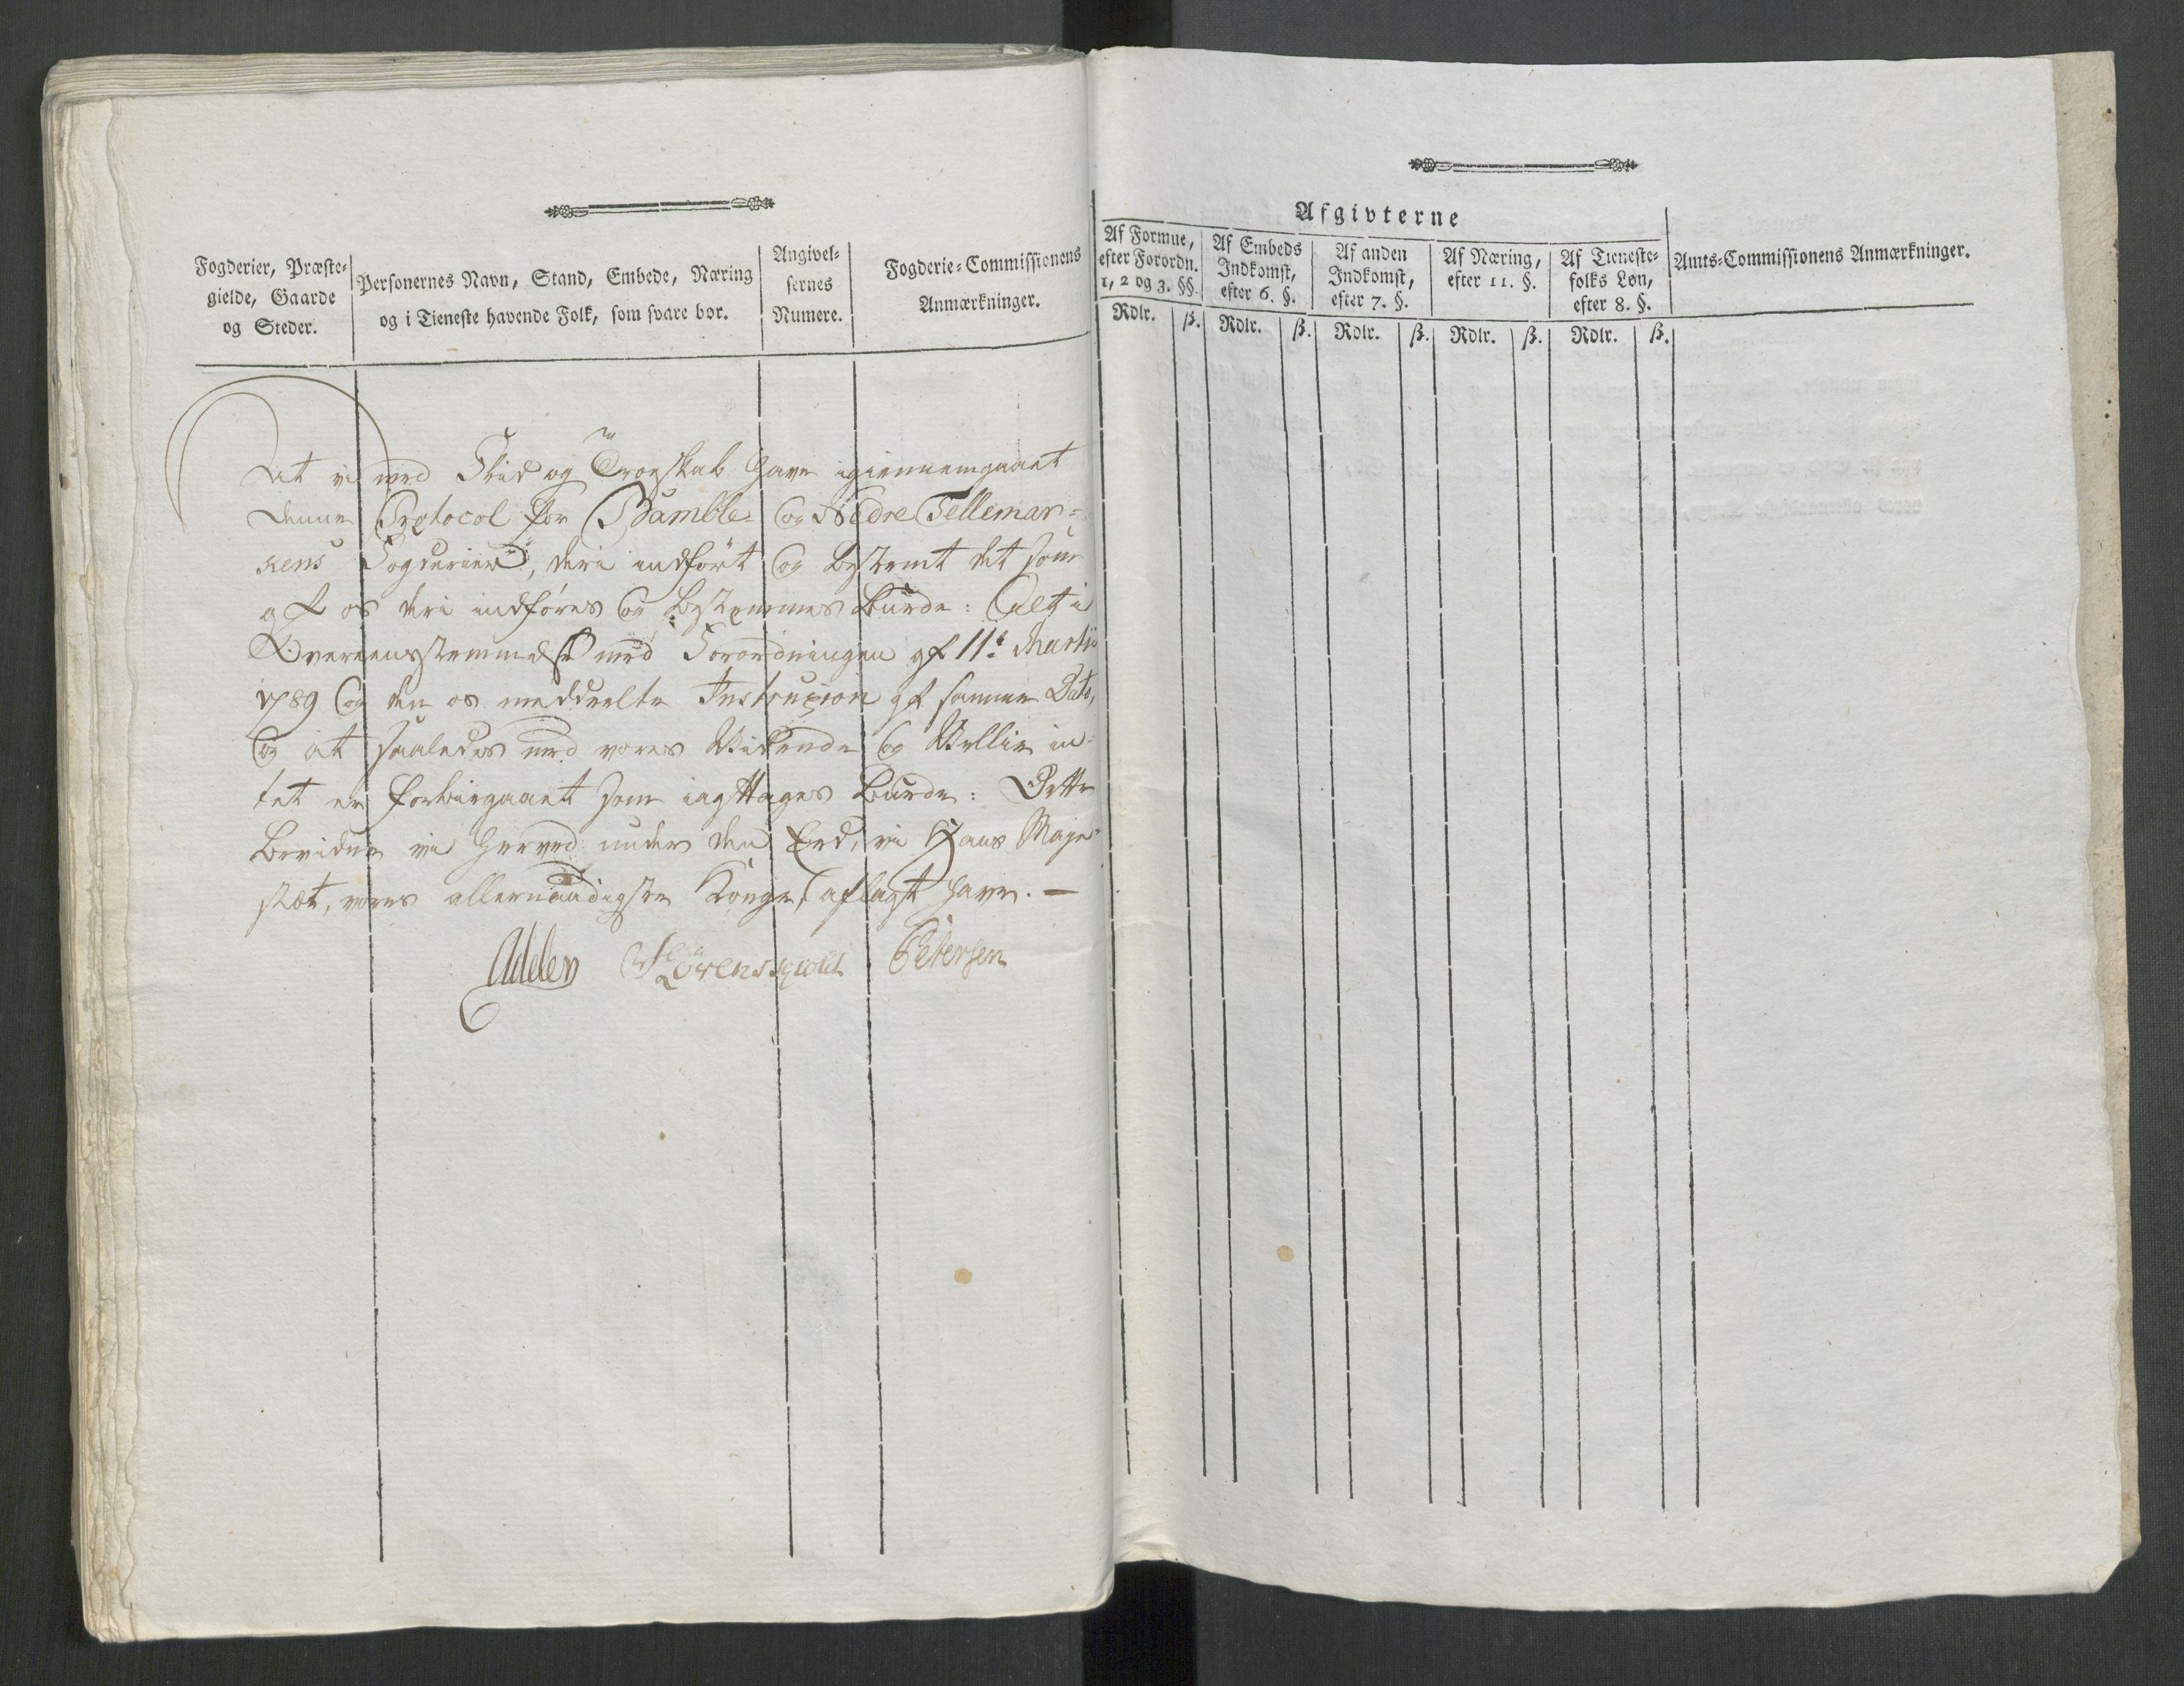 Fogderier, Præste-
gielde, Gaarde
og Steder.
Personernes Navn, Stand, Embede, Næring
og i Tieneste havende Folk, som svare bør.
Angivel-
sernes
Numere.
Fogderie-Commissionens
Anmærkninger.
At vi med Flid og Troeskab have igiennemgaaet
denne Protocol for Bamble og Nedre Tellemar-
kens Fogderier, deri indført og bestemt det som
af os deri indføres og bestemmes burde: Alt i
Overeensstemmelse med Forordningen af 11te Martii
1789 og den os meddeelte Instruxion af samme Dato,
og at saaledes med vores Vidende og Villie in-
tet er forbiegaaet som iagttages burde: Dette
bevidne vi herved under den Eed, vi Hans Maje-
stæt, vores allernaadigste Konge, aflagt have. —
Adeler Løvenskiold Petersen
Afgivterne
Af Formue,
efter Forordn.
1, 2 og 3. §§.
Af Embeds
Indkomst,
efter 6. §.
Af anden
Indkomst,
efter 7. §.
Af Næring,
efter 11. §.
Af Tieneste-
folks Løn,
efter 8. §.
Amts-Commissionens Anmærkninger.
Rdlr. ß. Rdlr. ß. Rdlr. ß. Rdlr. ß. Rdlr. ß.